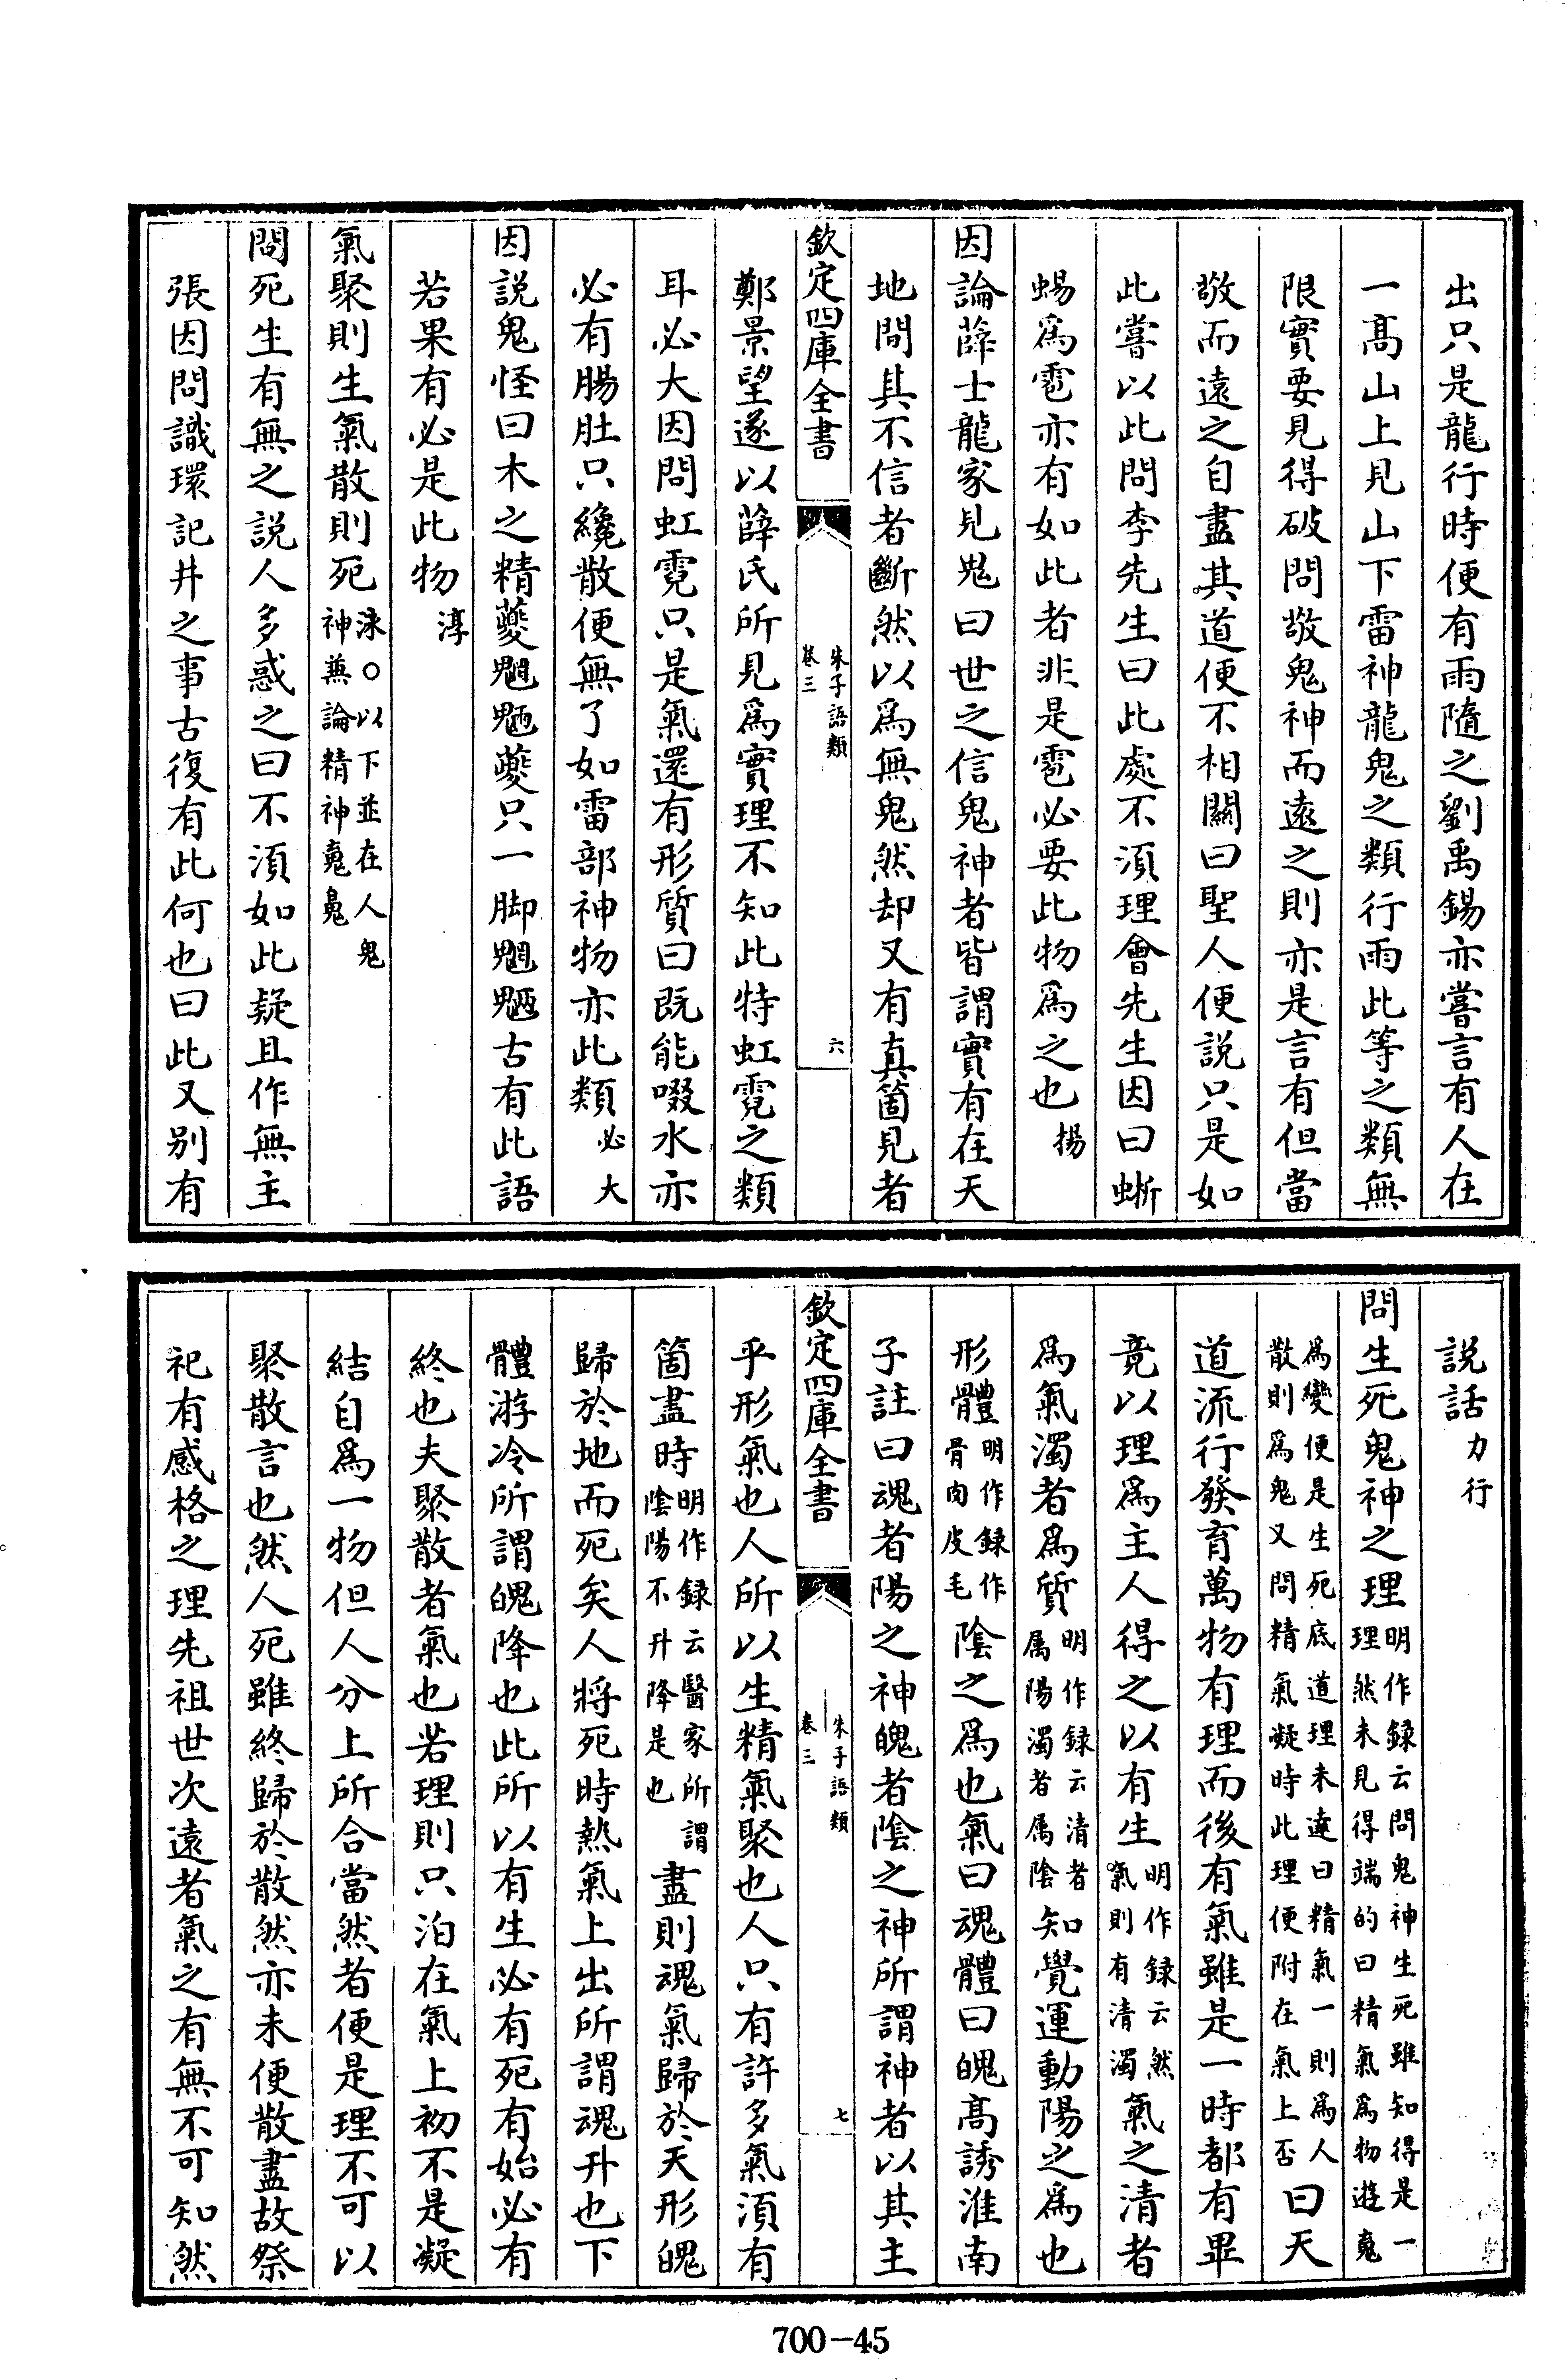 出只是龍行時便有雨隨之劉禹錫亦嘗言有人在
一髙山上見山下雷神龍鬼之類行雨此等之類無
限實要見得破問敬鬼神而逺之則亦是言有但當
敬而逺之自盡其道便不相關曰聖人便說只是如
此嘗以此問李先生曰此處不湏理㑹先生因曰蜥
蜴爲雹亦有如此者非是雹必要此物爲之也揚
因論薛士龍家見鬼曰世之信鬼神者皆謂實有在天
地間其不信者斷然以爲無鬼然却又有真箇見者
鄭景望遂以薛氏所見爲實理不知此特虹霓之類
耳必大因問虹霓只是氣還有形質曰既能啜水亦
必有腸肚只纔散便無了如雷部神物亦此類必大
因説鬼怪曰木之精夔魍魎夔只一脚魍魎古有此語
若果有必是此物淳
氣聚則生氣散則死泳○以下並在人鬼
神兼論精神䰟䰟
問死生有無之説人多惑之曰不湏如此疑且作無主
張因問識環記井之事古復有此何也曰此又别有
欽定四庫全書
朱子語類
卷三
六
説話力行
問生死鬼神之理明作録云問鬼神生死雖知得是一
理然未見得端的曰精氣爲物遊䰟
爲變便是生死底道理未達曰精氣一則爲人
散則爲鬼又問精氣凝時此理便附在氣上否曰天
道流行發育萬物有理而後有氣雖是一時都有畢
竟以理爲主人得之以有生明作録云然
氣則有清濁氣之清者
爲氣濁者爲質明作録云清者
属陽濁者属陰知覺運動陽之爲也
形體明作録作
骨肉皮毛陰之爲也氣曰魂體曰魄髙誘淮南
子註曰魂者陽之神魄者陰之神所謂神者以其主
乎形氣也人所以生精氣聚也人只有許多氣湏有
箇盡時明作録云醫家所謂
陰陽不升降是也盡則魂氣歸於天形魄
歸於地而死矣人將死時熱氣上出所謂魂升也下
體游冷所謂魄降也此所以有生必有死有始必有
終也夫聚散者氣也若理則只泊在氣上初不是凝
結自爲一物但人分上所合當然者便是理不可以
聚散言也然人死雖終歸於散然亦未便散盡故祭
祀有感格之理先祖世次逺者氣之有無不可知然
欽定四庫全書
朱子語類
卷三
七
700-45